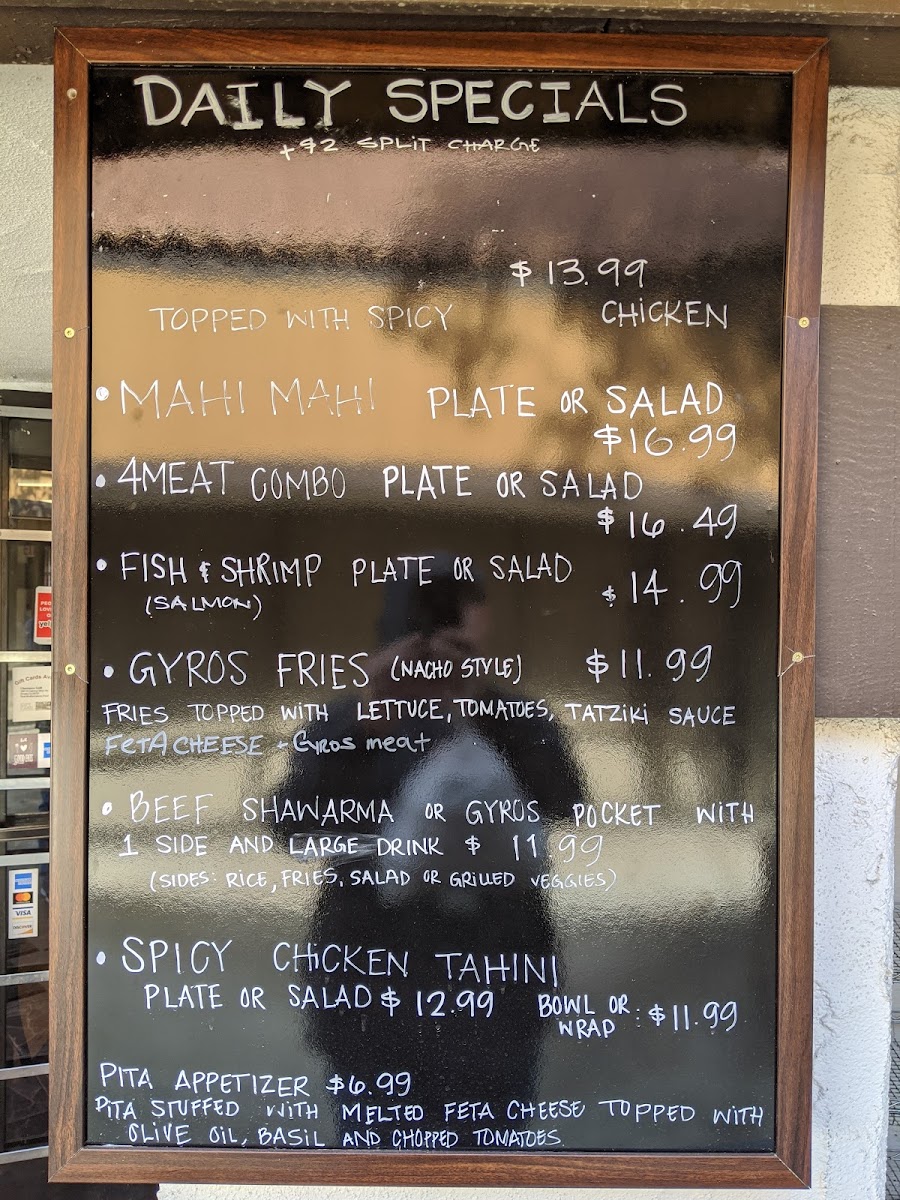 DAILY SPECIALS
+$2 SPLIT CHARGE
$13.99
TOPPED WITH SPICY CHICKEN
• MAHI MAHI PLATE OR SALAD
$16.99
• 4MEAT COMBO PLATE OR SALAD
$16.49
• FISH & SHRIMP PLATE OR SALAD
$14.99
(SALMON)
• GYROS FRIES (NACHO STYLE) $11.99
FRIES TOPPED WITH LETTUCE, TOMATOES, TATZIKI SAUCE
FETA CHEESE + Gyros meat
• BEEF SHAWARMA OR GYROS POCKET WITH
1 SIDE AND LARGE DRINK $11.99
(SIDES: RICE, FRIES, SALAD OR GRILLED VEGGIES)
• SPICY CHICKEN TAHINI
PLATE OR SALAD $12.99 BOWL OR
WRAP : $11.99
PITA APPETIZER $6.99
PITA STUFFED WITH MELTED FETA CHEESE TOPPED WITH
OLIVE OIL, BASIL AND CHOPPED TOMATOES.
Gift Cards
VISA